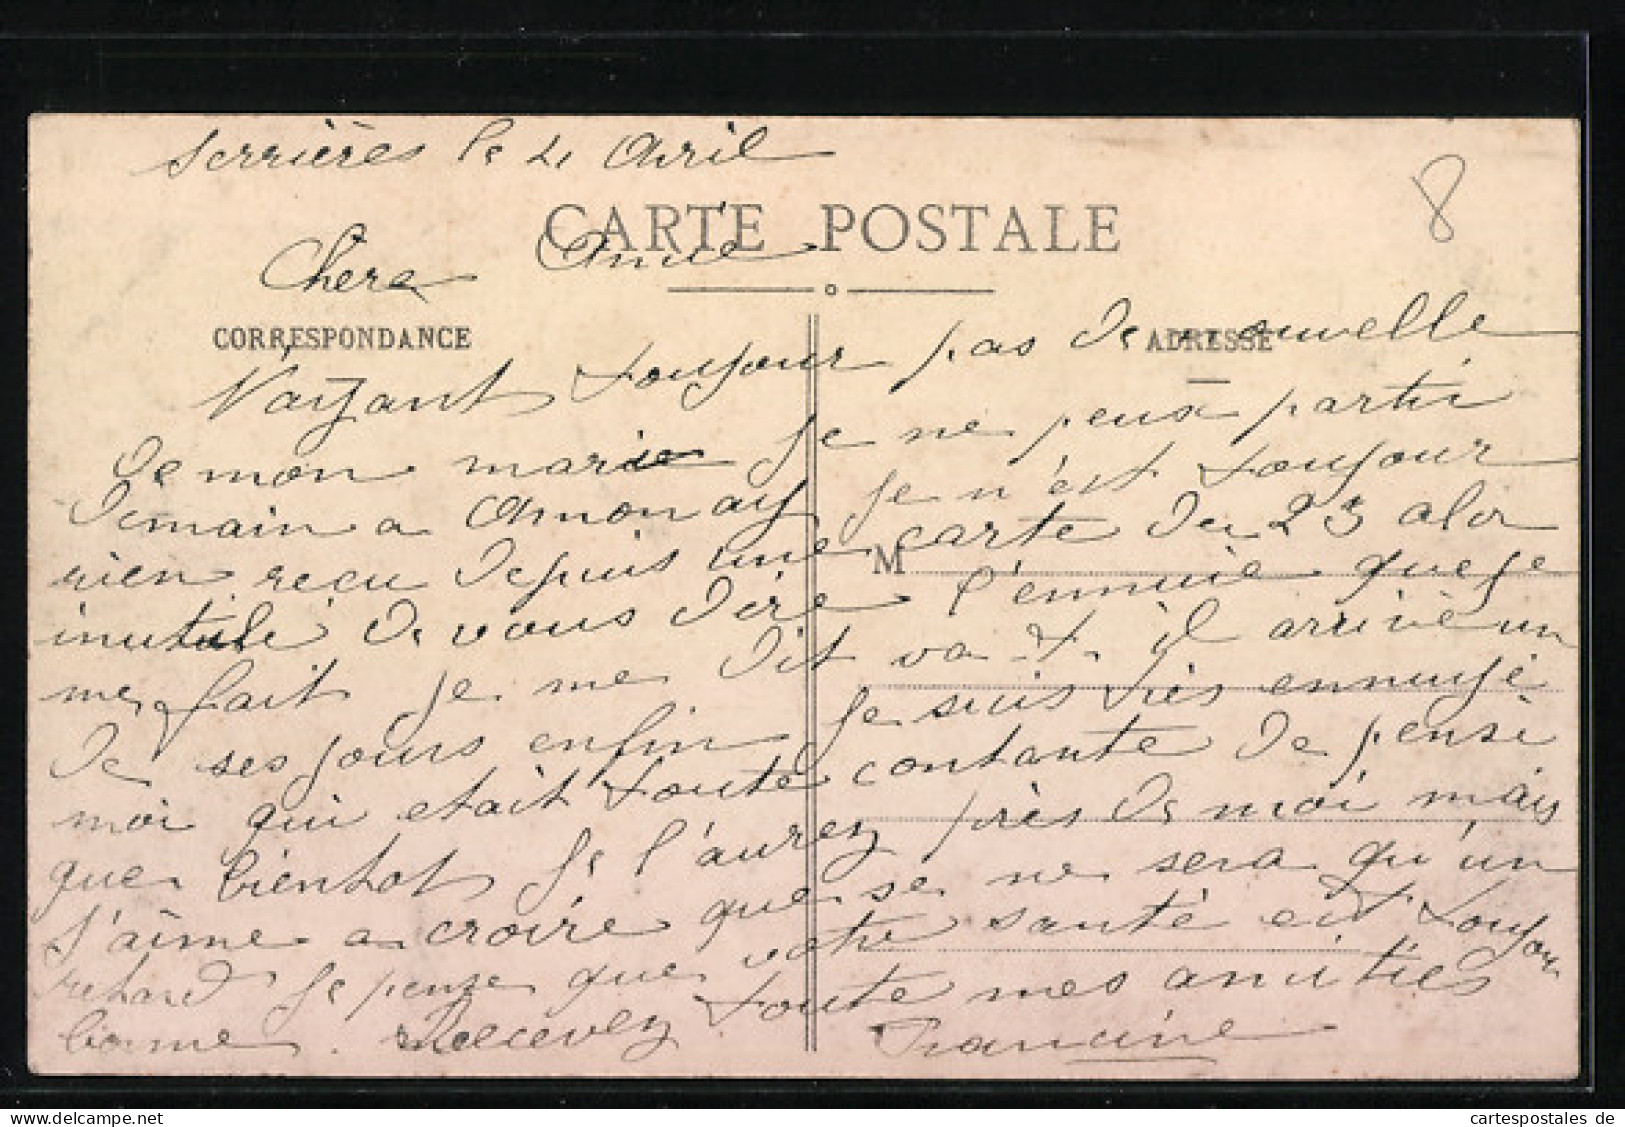 Serrières le 4 Avril
8
CARTE POSTALE
Chere Amie
CORRESPONDANCE
ADRESSE
Vaiyant toujour pas de nouvelle
de mon marie je ne peux partir
demain a Annonay je n'est toujour
rien recu depuis une carte du 23 alor
M
inutile de vous dire l'ennuie que je
me fait je me dit va t. il arrivè un
de ses jours enfin je suis très ennuyè
moi qui etait toute contante de pensè
que bientot je l'aurez près de moi mais
j'aime a croire que se ne sera qu'un
retard je pense que votre santè est toujour
bonne. Recevez toute mes amities
Francine
cartespostales de